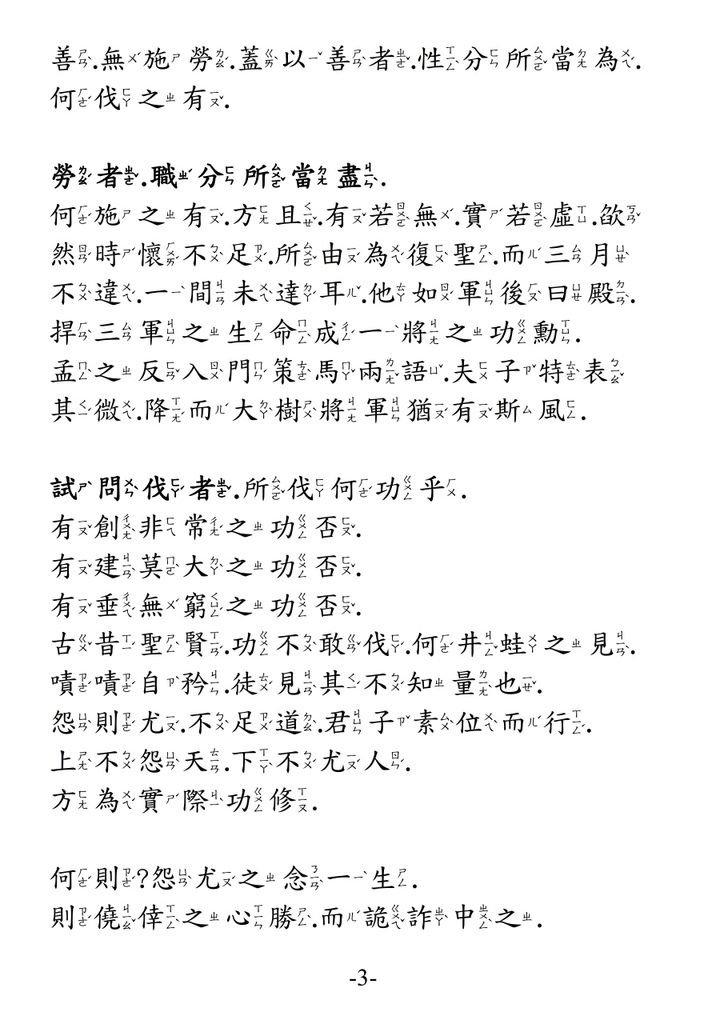 善.無施勞.蓋以善者.性分所當為.
何伐之有.
勞者.職分所當盡.
何施之有.方且.有若無.實若虛.欿
然時懷不足.所由為復聖.而三月
不違.一間未達耳.他如軍後曰殿.
捍三軍之生命成一將之功勳.
孟之反入門策馬兩語.夫子特表
其微.降而大樹將軍猶有斯風.
試問伐者.所伐何功乎.
有創非常之功否.
有建莫大之功否.
有垂無窮之功否.
古昔聖賢.功不敢伐.何井蛙之見.
嘖嘖自矜.徒見其不知量也.
怨則尤.不足道.君子素位而行.
上不怨天.下不尤人.
方為實際功修.
何則?怨尤之念一生.
則僥倖之心勝.而詭詐中之.
-3-